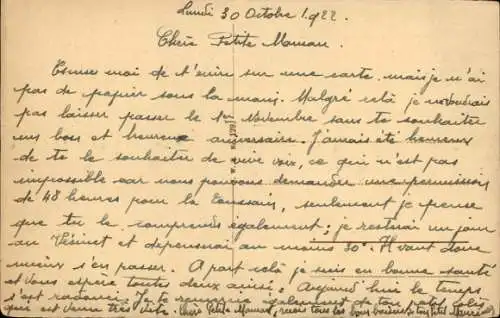 Lundi 30 Octobre 1922.
Chère Petite Maman.
Excuse moi de t'ecrire sur une carte, mais je n'ai
pas de papier sous la main. Malgré cela je ne voudrais
pas laisser passer le 1er Novembre sans te souhaiter
un bon et heureux aniversaire. J'amais été heureux
de te le souhaiter de vive voix, ce qui n'est pas
impossible car nous pouvons demander une permission
de 48 heures pour la Toussain, seulement je pense
que tu le comprends également; je resterai un jour
au Vésinet et dépenserai au moins 30f. Il vaut donc
mieux s'en passer. A part cela je suis en bonne santé
et vous espère toutes deux ainsi. Aujourd'hui le temps
s'est radouci. Je te remercie également de ton petit colis
qui est venu très vite. Chère Petite Maman, reçois tous les bons baisers de ton petit